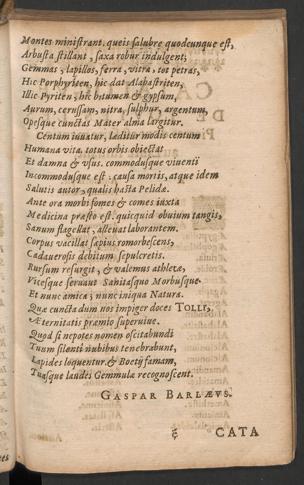 Montes ministrant. queis salubre quodcunque est,
Arbusta stillant, saxa robur indulgent;
Gemmas, lapillos, ferra, vitra, tot petras,
Hic Porphyriten, hic dat Alabastriten,
Illic Pyriten, hic bitumen & gypsum,
Aurum, cerussam, nitra, sulphur, argentum,
Opesque cunctas Mater alma largitur.
Centum iuvatur, læditur modis centum
Humana vita. totus orbis obiectat
Et damna & usus. commodusque viventi
Incommodusque est. causa mortis, atque idem
Salutis autor, qualis hasta Pelidæ.
Ante ora morbi fomes & comes iuxta
Medicina præsto est. quicquid obvium tangis,
Sanum flagellat, allevat laborantem.
Corpus vacillat sæpius remorbescens,
Cadaverosis debitum sepulcretis.
Rursum resurgit, & valemus athletæ,
Vicesque servant Sanitasque Morbusque.
Et nunc amica, nunc iniqua Natura.
Quæ cuncta dum nos impiger doces TOLLI,
Æternitatis præmio supervive.
Quod si nepotes nomen oscitabundi
Tuum silenti nubibus tenebrabunt,
Lapides loquentur. & Boetij famam,
Tuasque laudes Gemmulæ recognoscent.
GASPAR BARLÆVS.
CATA